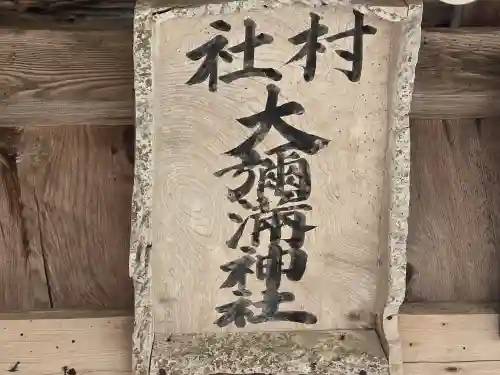 村社
大彌滿神社